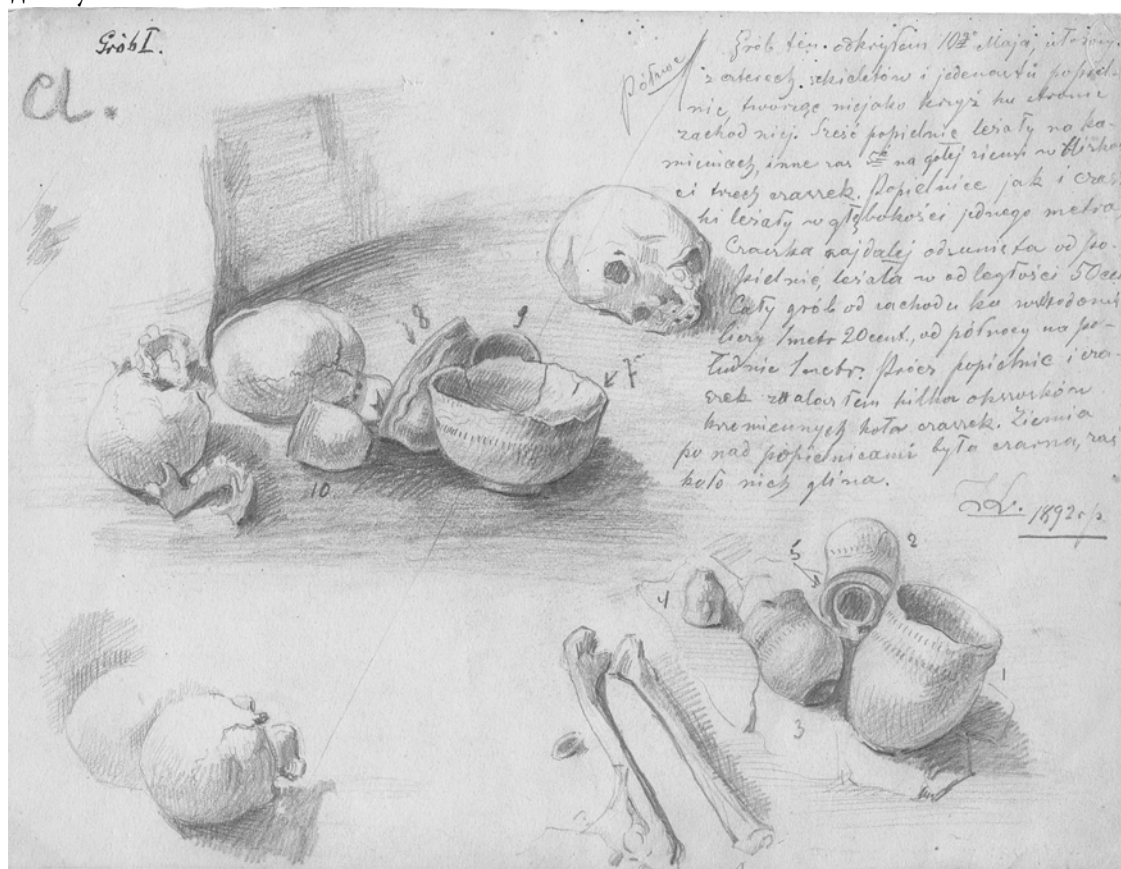 Grób I.
a.
Północ
Grób ten odkryłem 10go Maja, złożony
z czterech szkieletów i jedenastu popiel-
nic, tworząc niejako krzyż ku stronie
zachodniej. Sześć popielnic leżały na ka-
mieniach, inne zaś na gołej ziemi w blisko-
ci trzech czaszek. Popielnice jak i czasz-
ki leżały w głębokości jednego metra
Czaszka najdalej odsunięta od po-
pielnic, leżała w odległości 50 cen
Cały grób od zachodu ku wschodowi
liczy 1 metr 20 cent., od północy na po-
łudnie 1 metr. Prócz popielnic i cza-
szek znalazłem kilka okrzosków
krzemiennych koło czaszek. Ziemia
po nad popielnicami była czarna, zaś
koło nich glina.
1892 r
8
9
7
10
5
2
4
1
3